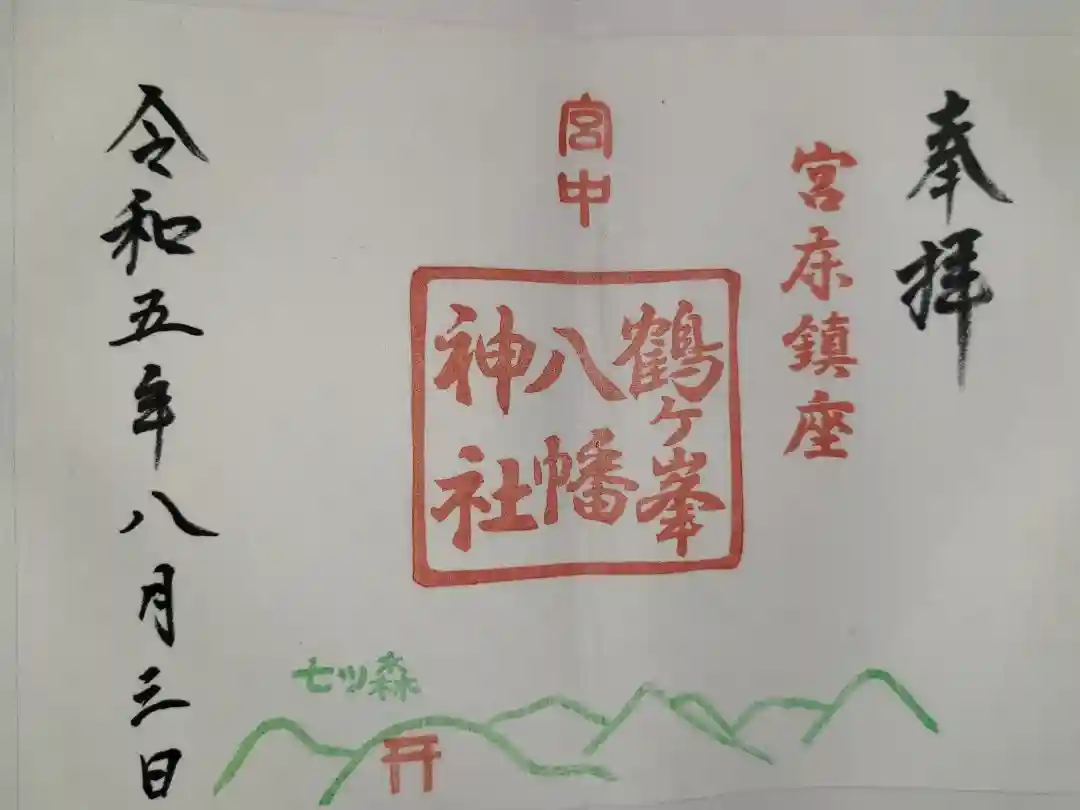 奉拝
宮床鎮座
宮中
鶴ケ峯
八幡
神社
令和五年八月三日
七ツ森